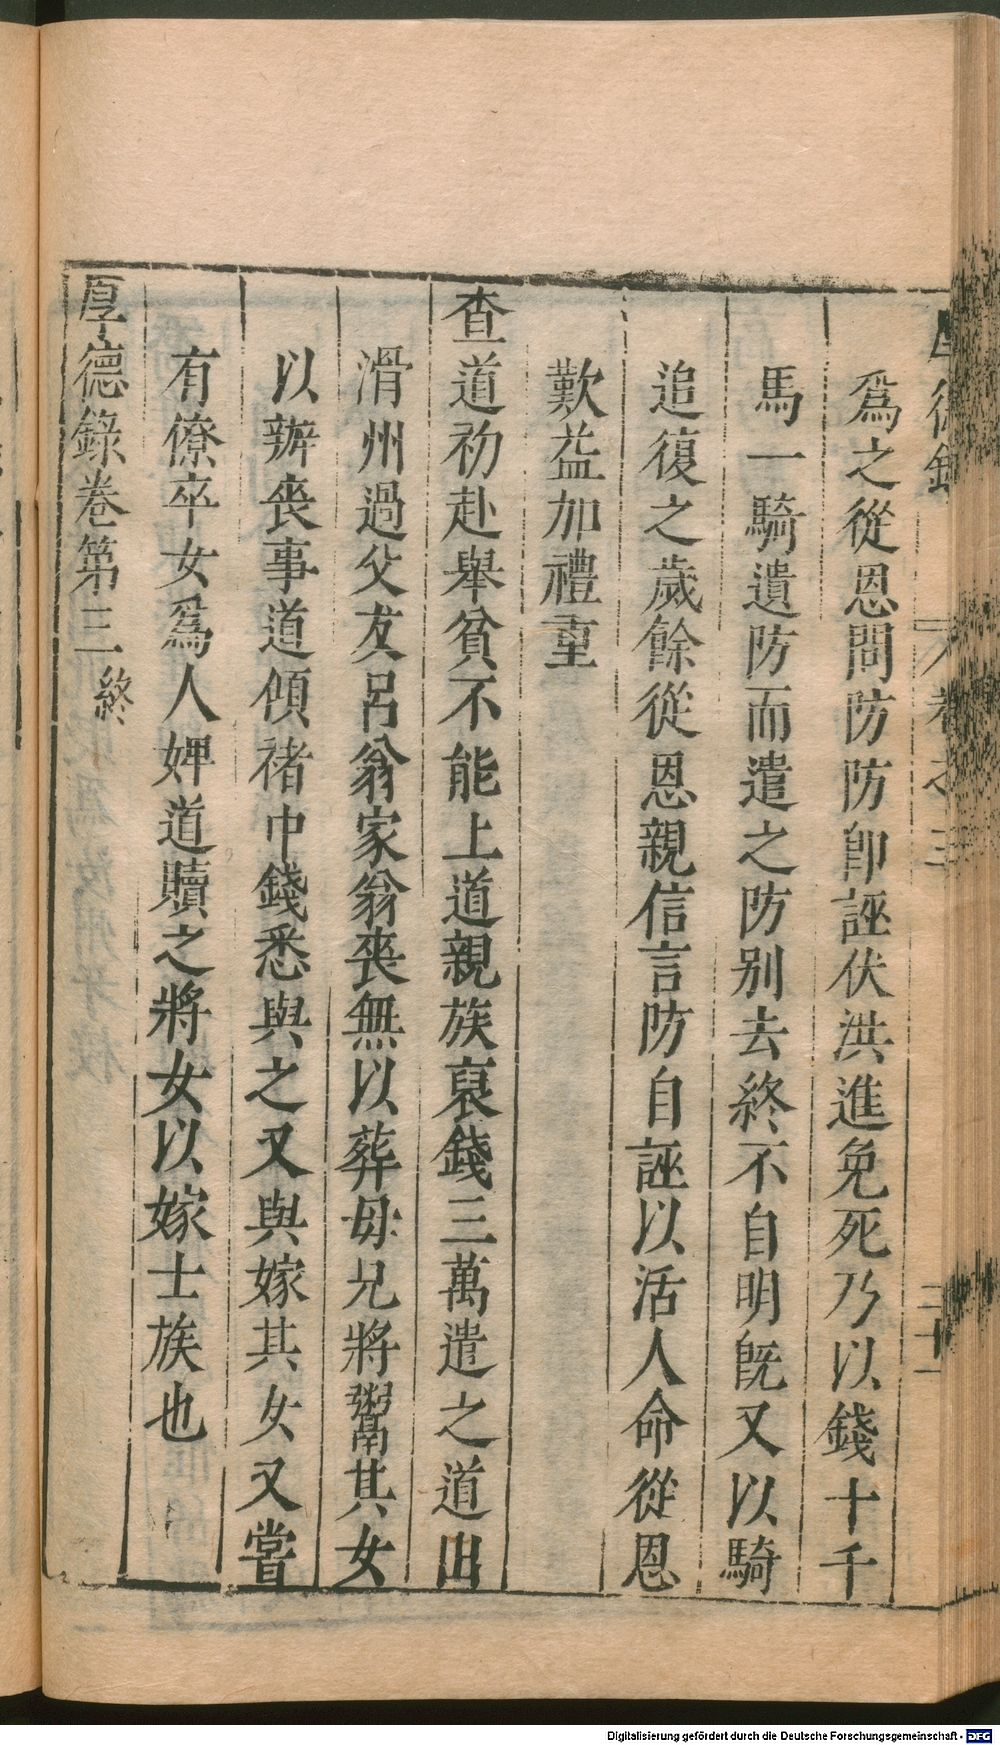 爲之從恩問防防卽誣伏洪進免死乃以錢十千
馬一騎遺防而遣之防別去終不自明旣又以騎
追復之歲餘從恩親信言防自誣以活人命從恩
歎益加禮重
查道初赴舉貧不能上道親族裒錢三萬遣之道出
滑州過父友呂翁家翁喪無以葬母兄將鬻其女
以辦喪事道傾禇中錢悉與之又與嫁其女又嘗
有僚卒女爲人婢道贖之將女以嫁士族也
厚德錄卷第三終
卷之三
三十一
Digitalisierung gefördert durch die Deutsche Forschungsgemeinschaft - DFG